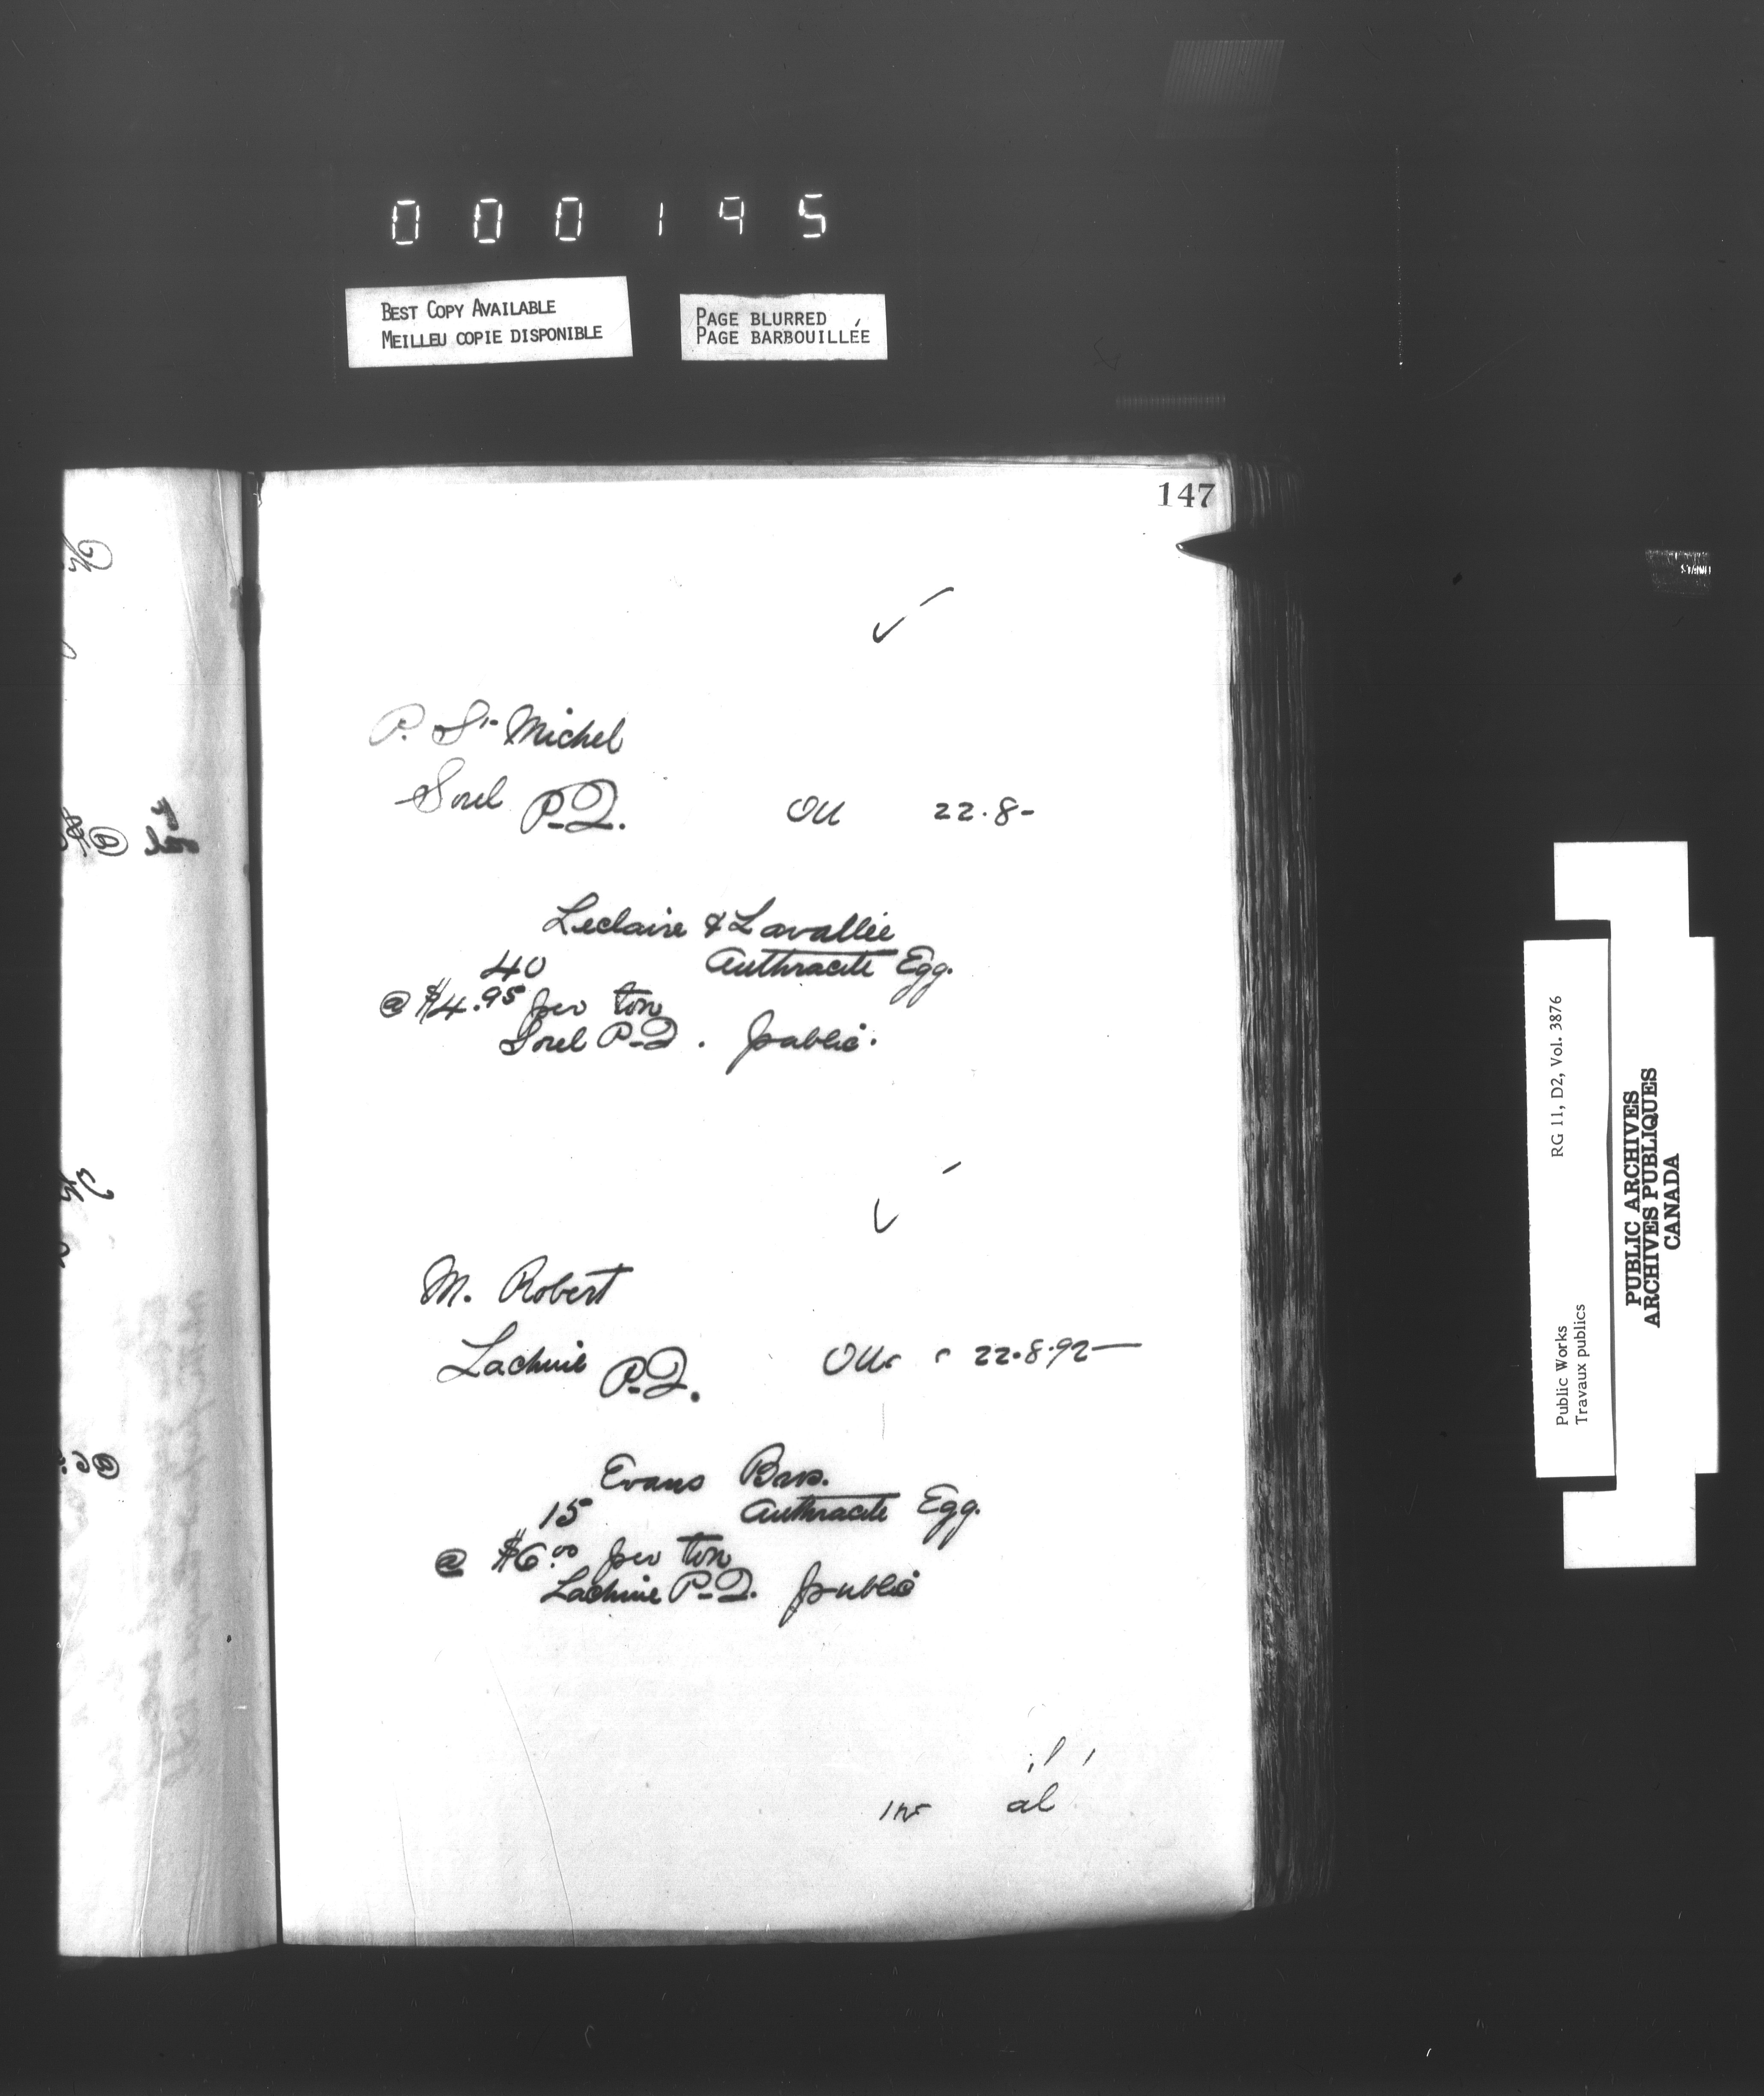 000195
BEST COPY AVAILABLE
MEILLEU COPIE DISPONIBLE
PAGE BLURRED
PAGE BARBOUILLÉE
147
P. St. Michel
Sorel P.Q. 22.8-
Leclaire & Lavallée
40 Anthracite Egg.
@ $4.95 per ton
Sorel P.Q. public.
M. Robert
Lachine P.Q. 22.8.92
Evans Bros.
15 Anthracite Egg.
@ $6.00 per ton
Lachine P.Q. public
RG 11, D2, Vol. 3876
Public Works
Travaux publics
PUBLIC ARCHIVES
ARCHIVES PUBLIQUES
CANADA